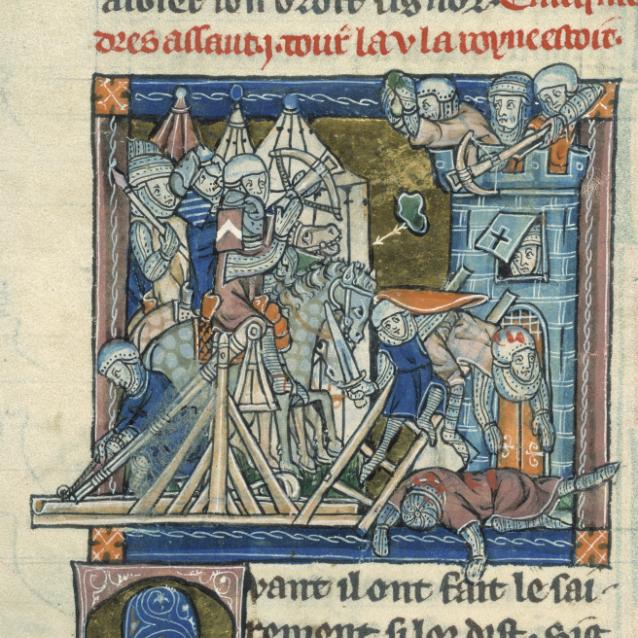 son droit signor.
dres assaut j. tour la v la royne estoit.
vant il ont fait le sai-
rement si lor dist.